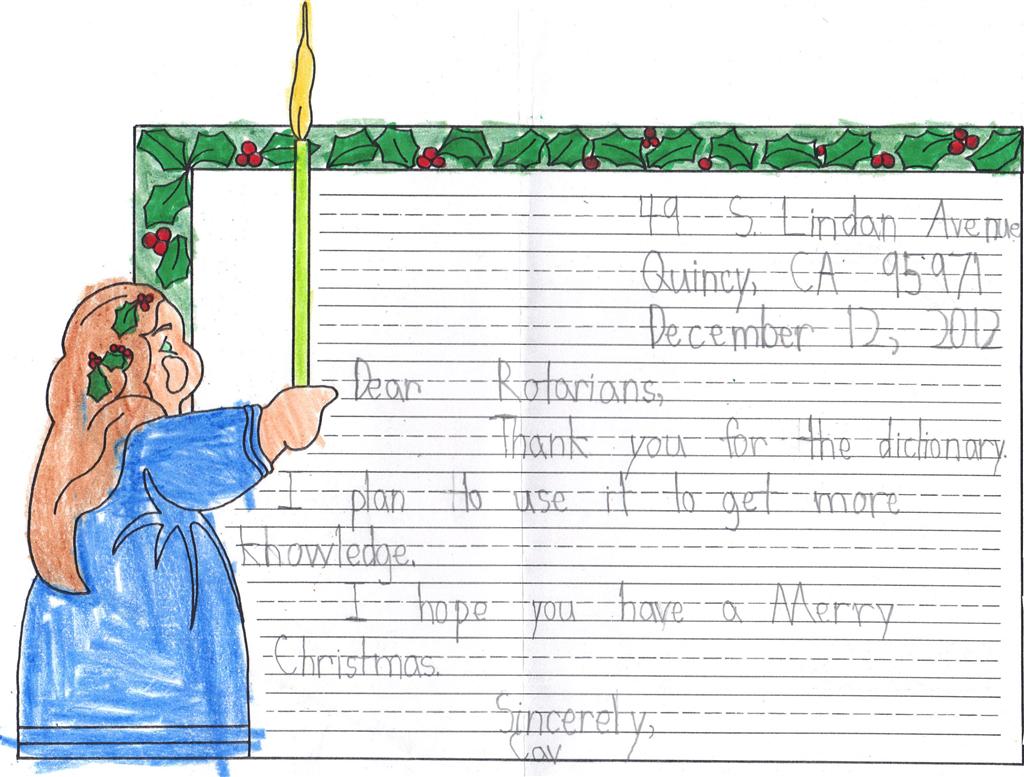 49 S. Lindan Avenue
Quincy, CA 95971
December 12, 2012
Dear Rotarians,
Thank you for the dictionary.
I plan to use it to get more
knowledge.
I hope you have a Merry
Christmas.
Sincerely,